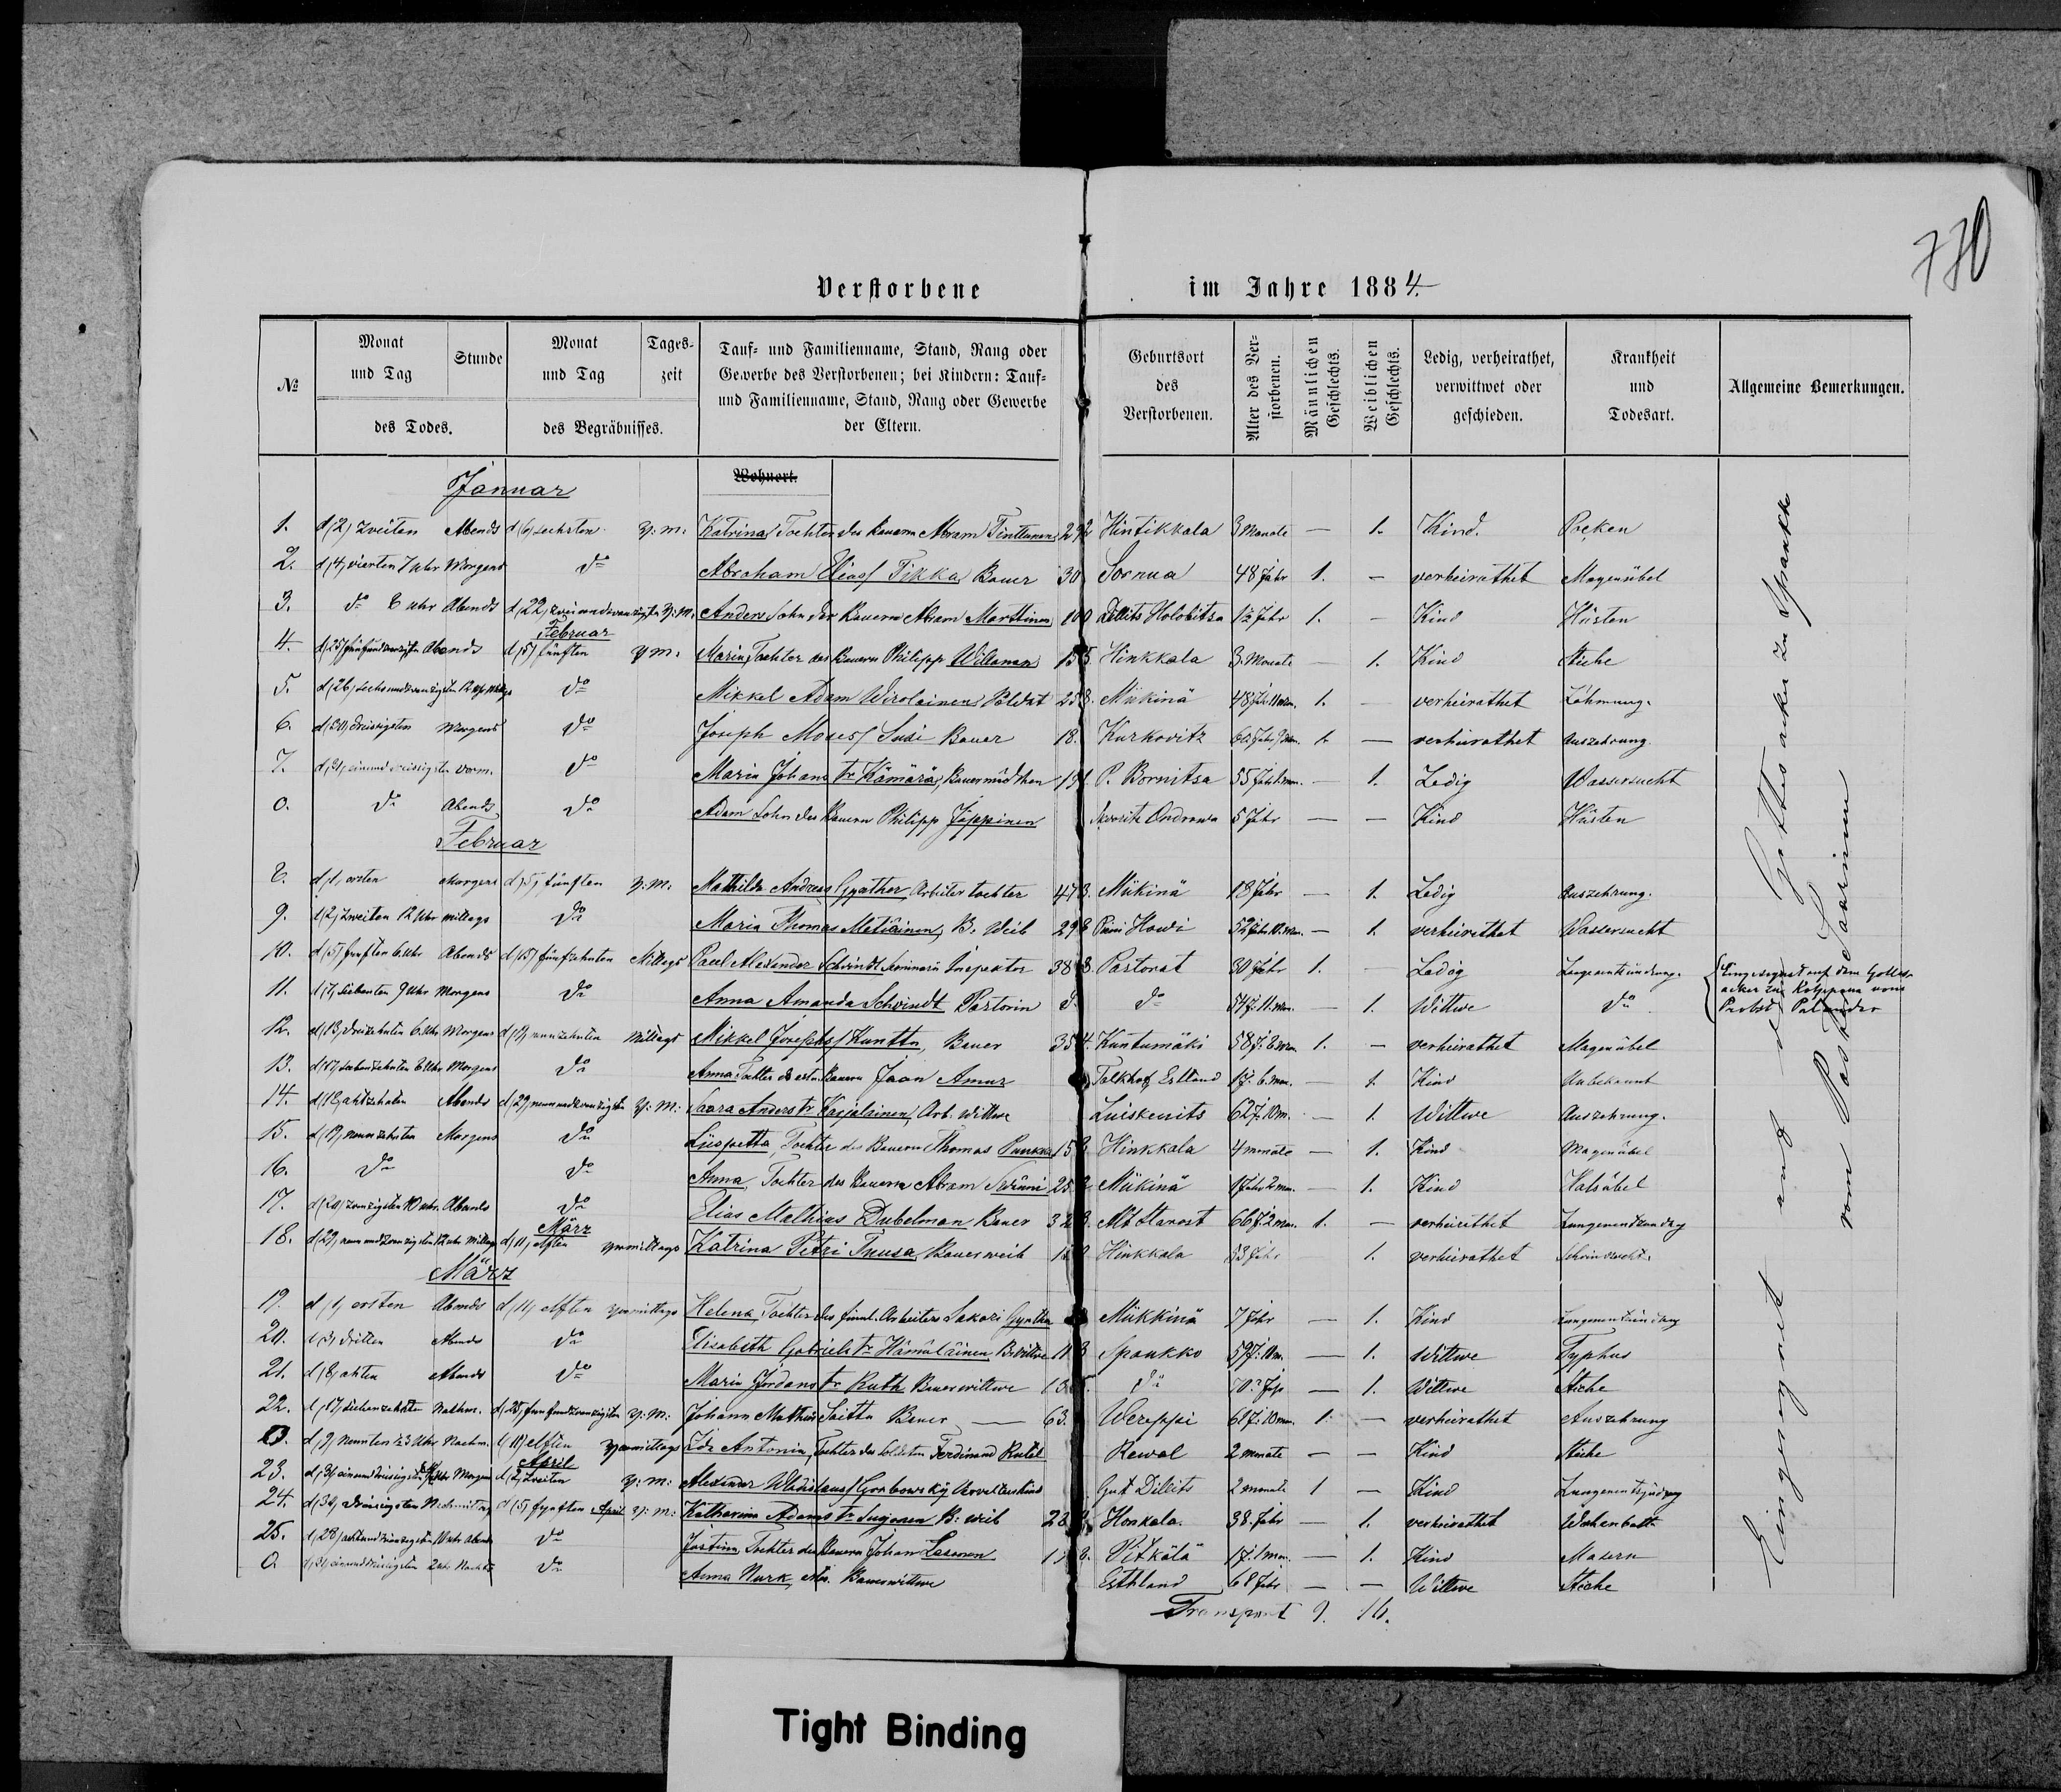 770
Verstorbene im Jahre 1884.
№ Monat und Tag Stunde des Todes. Monat und Tag Tageszeit des Begräbnisses. Tauf- und Familienname, Stand, Rang oder Gewerbe des Verstorbenen; bei Kindern: Tauf- und Familienname, Stand, Rang oder Gewerbe der Eltern. Geburtsort des Verstorbenen. Alter des Verstorbenen. Männlichen Geschlechts. Weiblichen Geschlechts. Ledig, verheirathet, verwittwet oder geschieden. Krankheit und Todesart. Allgemeine Bemerkungen.
Wohnort.
Januar
1. d (2) zweiten Abends d (6) sechsten Katrina Tochter des Bauern Abram Tinttunen Hintikkala 3 Monate — 1. Kind. Pocken
2. d (4) vierten 7 Uhr Morgens do Abraham Elias Tikka Bauer 30 Sornua 48 Jahr 1. — verheirathet Magenübel
3. do 8 Uhr Abends d (22) zweiundzwanzigsten Anders Sohn des Bauern Abram Marttinen 100 Dillits Holobitsa 1½ Jahr 1. — Kind Husten
Februar
4. d (25) fünfundzwanzigsten Abends d (5) fünften Maria Tochter des Bauern Philipp Willanen Hinkkala 3 Monate — 1. Kind Stiche
5. d (26) sechsundzwanzigsten 12 Uhr Mittags do Mikkel Adam Wirolainen Soldat 258. Mükinä 48 Jahr 11 Mon. 1. — verheirathet Lähmung.
6. d (30) dreissigsten Morgens do Joseph Moses Susi Bauer 18. Kurkovitz 1. — verheirathet Auszehrung.
7. d (31) einunddreissigsten Vorm. do Maria Johans tr Kämärä, Bauernmädchen P. Bornitsa 55 Jahr — 1. Ledig Wassersucht
0. do Abends do Adam Sohn des Bauern Philipp Jäppinen Skworitz Ondrowa 5 Jahr — — Kind Husten
Februar
8. d (1) ersten Morgens d (5) fünften Mathilda Andreas Gynther, Arbeiter tochter 473. Mükinä 18 Jahr — 1. Ledig Auszehrung.
9. d (2) zweiten 12 Uhr Mittags do Maria Thomas Metiäinen, B. Weib 298 Howi 52 Jahr 10. Mon. — 1. verheirathet Wassersucht
10. d (5) fünften 6 Uhr Abends d (15) fünfzehnten Mittags Paul Alexander Schvindt Seminarii Inspektor 383. Pastorat 30 Jahr 1. — Ledig Lungenentzündung. Eingesegnet auf dem Gottes-
11. d (7) siebenten 9 Uhr Morgens do Anna Amanda Schvindt Pastorin do do 54 J. 11. Mon. — 1. Wittwe do acker zu Kolppana vom Probst Palander
12. d (13) dreizehnten 6 Uhr Morgens d (19) neunzehnten Mittags Mikkel Josephs Kuntta, Bauer 354. Kuntumäki 58 J. 8 Mon. 1. — verheirathet Magenübel
13. d (17) siebenzehnten 8 Uhr Morgens do Anna Tochter des estn. Bauern Jaan Amur Talkhof Estland 1 J. 6. Mon. — 1. Kind Unbekannt
14. d (18) achtzehnten Abends d (29) neunundzwanzigsten Saara Anders tr Karjalainen, Arb. Wittwe Luiskenits 62 J. 10 m. — 1. Wittwe Auszehrung.
15. d (19) neunzehnten Morgens do Liispetta, Tochter des Bauern Thomas Punkka 153 Hinkkala 4 monate — 1. Kind Magenübel
16. do do Anna, Tochter des Bauern Abram 252 Mükinä 1 Jahr 2 mon. — 1. Kind Halsübel
17. d (20) zwanzigsten 10 Uhr Abends do Elias Mathias Dubelman Bauer Alt Starost 66 J. 2 Mon. 1. — verheirathet Lungenentzündg
März
18. d (29) neunundzwanzigsten 12 Uhr Mittag d (11) elften Katrina Petri Tuusa, Bauersweib Hinkkala 53 Jahr 1. verheirathet Schwindsucht.
März
19. d (1) ersten Abends d (11) elften Helena, Tochter des finnl. Arbeiters Sakari Gynther Mükkinä 7 Jahr — 1. Kind Lungenentzündung
20. d (3) dritten Abends do Elisabeth Gabriels tr Hämäläinen B. Wittwe Spankko 59 J. 10 m. — 1. Wittwe Typhus
21. d (8) achten Abends do Maria Jordans tr Ruth Bauerwittwe do 70 Jahr — 1. Wittwe Stiche
22. d (17) siebenzehnten Nachm. d (25) fünfundzwanzigsten Johann Mathias Saitta Bauer — 63. Wereppi 61 J. 10 mon. 1. — verheirathet Auszehrung
0. d (9) neunten ½3 Uhr Nachm. d (11) elften Ida Antonia, Tochter des Soldaten Ferdinand Rewal 2 monate — — Kind Stiche
April
23. d (31) einunddreissigsten Morgens d (2) zweiten Alexander Wladislaus Gorbowsky Gut Dillits 2 monate 1 — Kind
24. d (30) dreissigsten Nachmittag d (5) fynften April Katharina Adams tr B. weib Honkala. 38. Jahr — 1. verheirathet Wochenbett
25. d (28) achtundzwanzigsten Abends do Justina, Tochter des Bauern Johan Lasonen Pitkälä 1 J. 1 Mon. — 1. Kind Masern
0. d (31) einunddreissigsten 2 Uhr Nachts do Anna Nurk, Bauerwittwe Esthland 68 Jahr — — Wittwe Stiche
Transport 9. 16.
Eingesegnet auf dem Gottes acker zu Spankko
vom Pastor Saarinen
Tight Binding